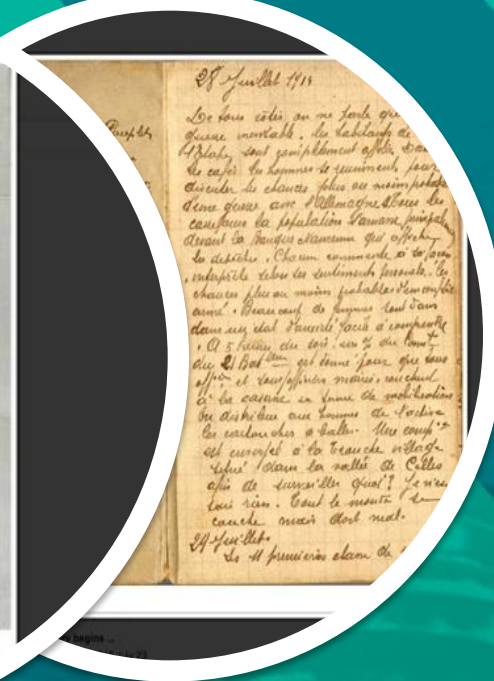 28 Juillet 1914
De tous côtés on ne parle que
guerre inévitable. les habitants de
sont complètement affolés. Dans
les cafés les hommes se réunissent pour
discuter les chances plus ou moins probables
d'une guerre avec l'Allemagne. Tous les
la population s'amasse
devant la Banque qui affiche
les dépêches. Chacun commente à sa façon
interprète selon ses sentiments personnels les
chances plus ou moins probables d'un conflit
armé. Beaucoup de femmes sont dans
dans un état d'anxiété facile à comprendre
. A 5 heures du soir, un
du 21 Bat est donné pour que tous
offic et sous officiers mariés couchent
à la caserne en tenue de mobilisation
on distribue aux hommes de l'active
les cartouches à balles. Une comp
est envoyée à la Trouche village
situé dans la vallée de Celles
afin de surveiller quoi? Je n'en
sais rien. Tout le monde se
couche mais dort mal.
29 Juillet.
Les 11 premières de
begins ...
23